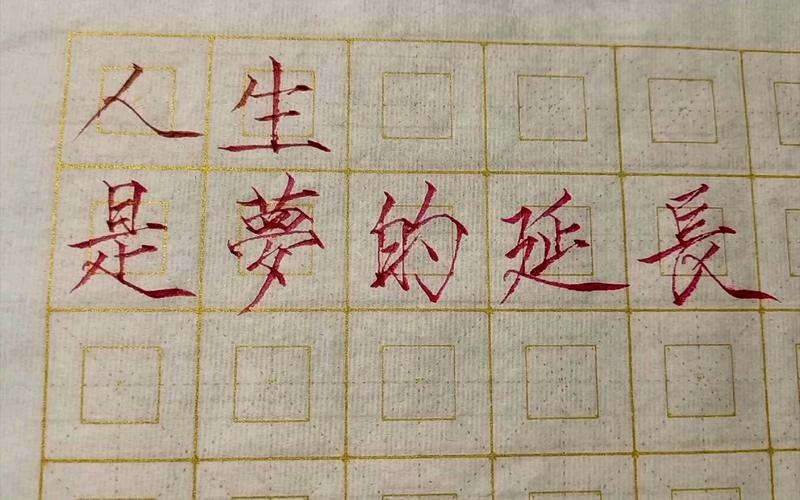 人生
是夢的延長